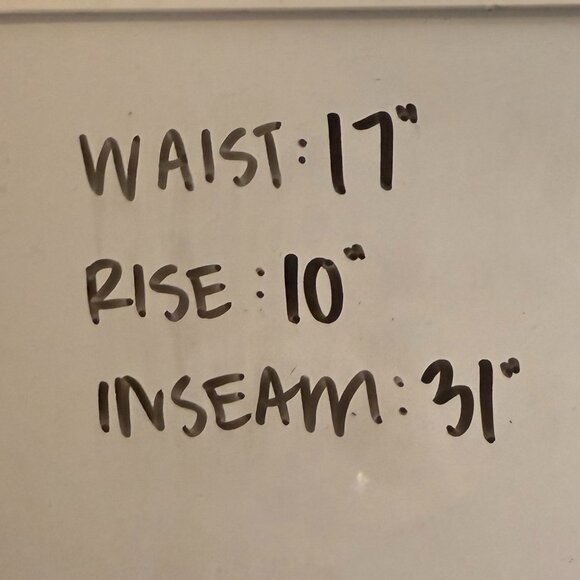 WAIST: 17"
RISE: 10"
INSEAM: 31"